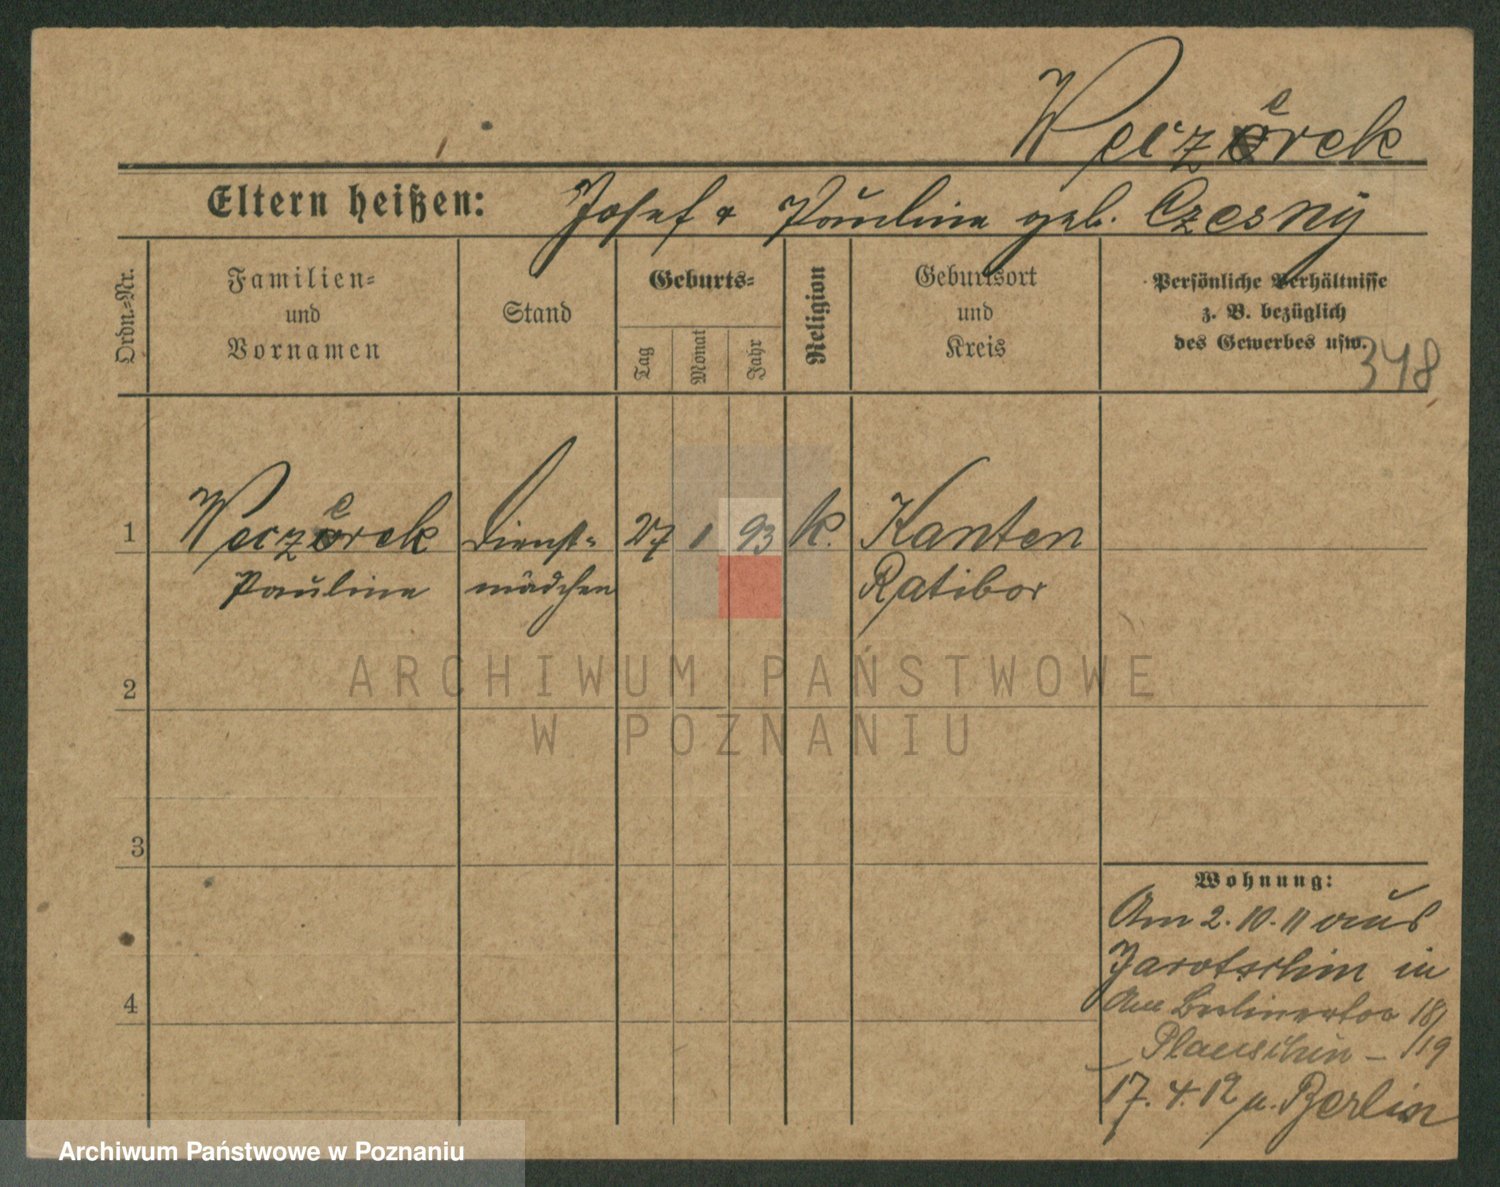 Weczerek
Eltern heißen: Josef & Pauline geb. Czesny
Ordn.-Nr.
Familien- und Vornamen
Stand
Geburts-
Tag
Monat
Jahr
Religion
Geburtsort und Kreis
Persönliche Verhältnisse
z. B. bezüglich
des Gewerbes usw.
348
1 Weczerek Dienst- 27 1 93 k. Kanten
Pauline mädchen Ratibor
2
3
4
Wohnung:
Am 2.10.11 aus
Jarotschin in
Am Berlinertor 18/
Plauschin - /19
17.4.12 n. Berlin
ARCHIWUM PAŃSTWOWE
W POZNANIU
Archiwum Państwowe w Poznaniu